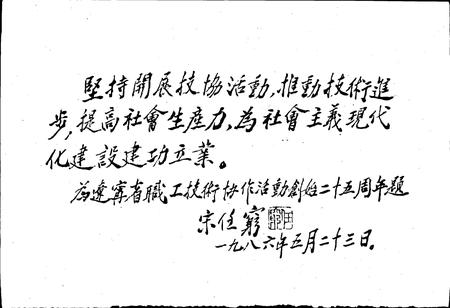 堅持開展技協活動，推動技術進
步，提高社會生産力，為社會主義現代
化建設建功立業。
為遼寧省職工技術協作活動創始二十五周年題
宋任窮
一九八六年五月二十三日。